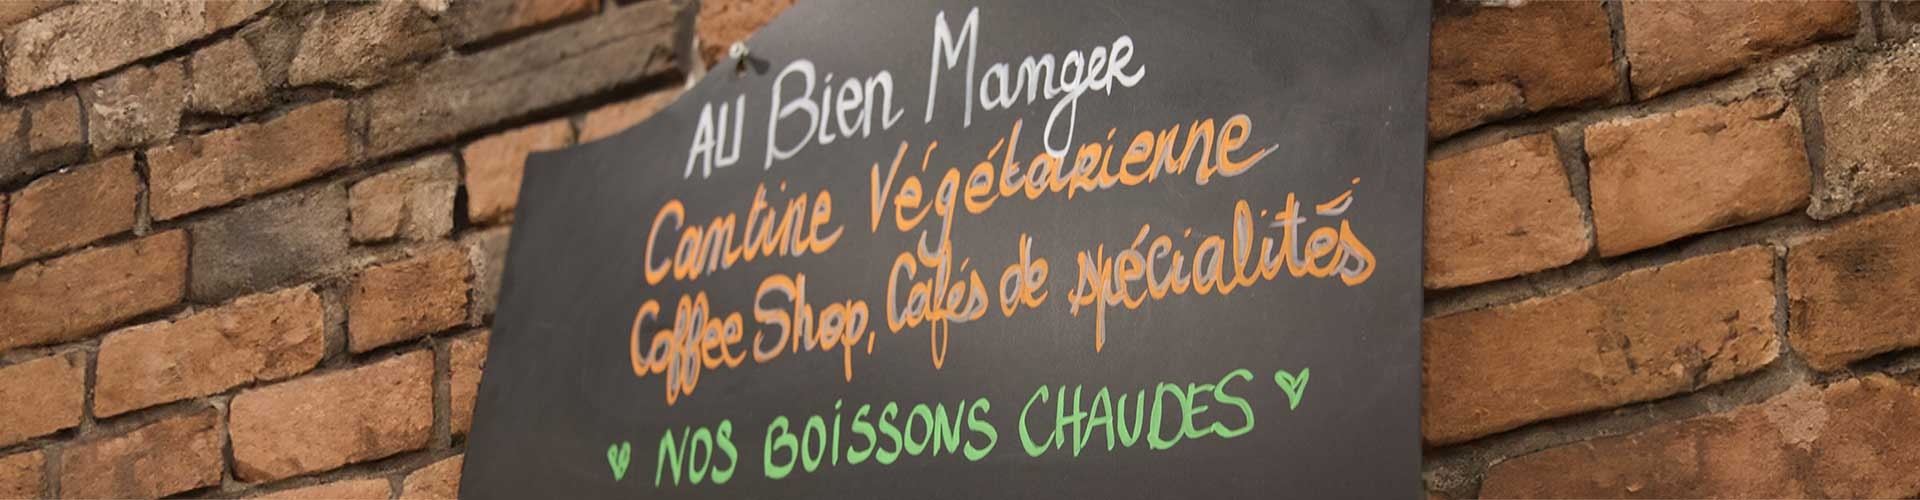 AU Bien Manger
Cantine Végétarienne
Coffee Shop, Cafés de spécialités
NOS BOISSONS CHAUDES